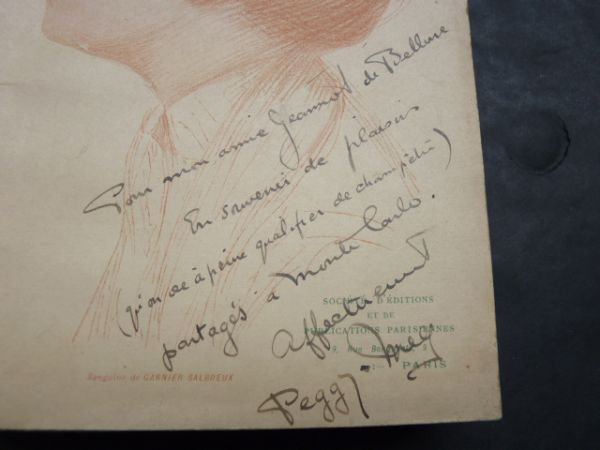 Pour mon amie Jeannot de Bellune
En souvenir de plaisirs
(qu'on ose à peine qualifier de champêtre)
partagés à Monte Carlo.
Affectueusement
Peggy
SOCIÉTÉ D'ÉDITIONS
ET DE
PUBLICATIONS PARISIENNES
9, Rue
PARIS
Sanguine de GARNIER-SALBREUX